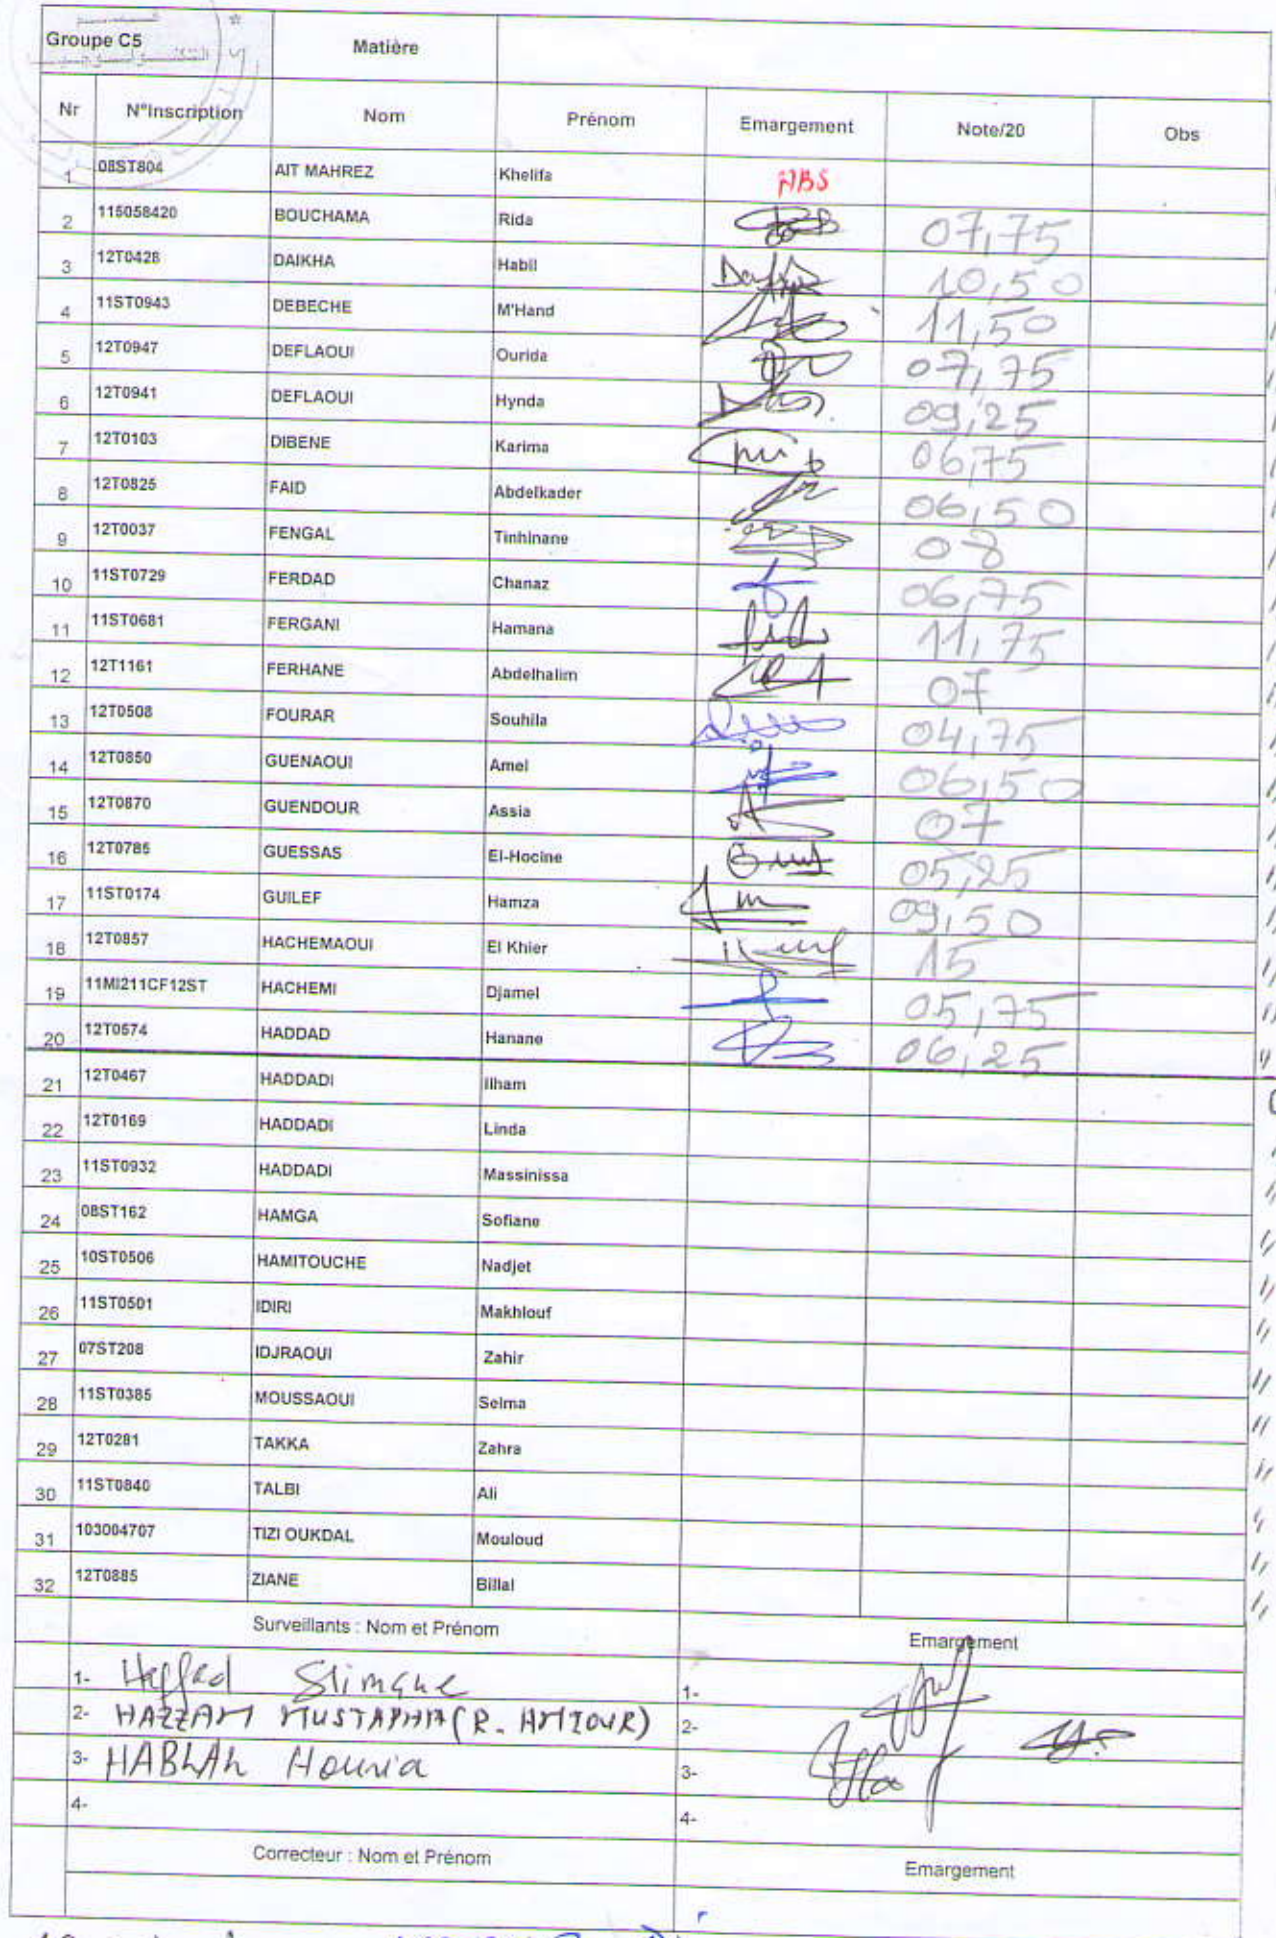 Groupe C5 Matière
Nr N°Inscription Nom Prénom Emargement Note/20 Obs
1 08ST804 AIT MAHREZ Khelifa ABS
2 115058420 BOUCHAMA Rida 07,75
3 12T0428 DAIKHA Habil 10,50
4 11ST0943 DEBECHE M'Hand 11,50
5 12T0947 DEFLAOUI Ourida 07,75
6 12T0941 DEFLAOUI Hynda 09,25
7 12T0103 DIBENE Karima 06,75
8 12T0825 FAID Abdelkader 06,50
9 12T0037 FENGAL Tinhinane 08
10 11ST0729 FERDAD Chanaz 06,75
11 11ST0681 FERGANI Hamana 11,75
12 12T1161 FERHANE Abdelhalim 07
13 12T0508 FOURAR Souhila 04,75
14 12T0850 GUENAOUI Amel 06,50
15 12T0870 GUENDOUR Assia 07
16 12T0785 GUESSAS El-Hocine 05,25
17 11ST0174 GUILEF Hamza 09,50
18 12T0857 HACHEMAOUI El Khier 15
19 11MI211CF12ST HACHEMI Djamel 05,75
20 12T0574 HADDAD Hanane 06,25
21 12T0467 HADDADI Ilham
22 12T0169 HADDADI Linda
23 11ST0932 HADDADI Massinissa
24 08ST162 HAMGA Sofiane
25 10ST0506 HAMITOUCHE Nadjet
26 11ST0501 IDIRI Makhlouf
27 07ST208 IDJRAOUI Zahir
28 11ST0385 MOUSSAOUI Selma
29 12T0281 TAKKA Zahra
30 11ST0840 TALBI Ali
31 103004707 TIZI OUKDAL Mouloud
32 12T0885 ZIANE Billal
Surveillants : Nom et Prénom Emargement
1- Heffad Slimane 1-
2- HAZZAM MUSTAPHA (R. AMZOUR) 2-
3- HABLAL Houria 3-
4- 4-
Correcteur : Nom et Prénom Emargement